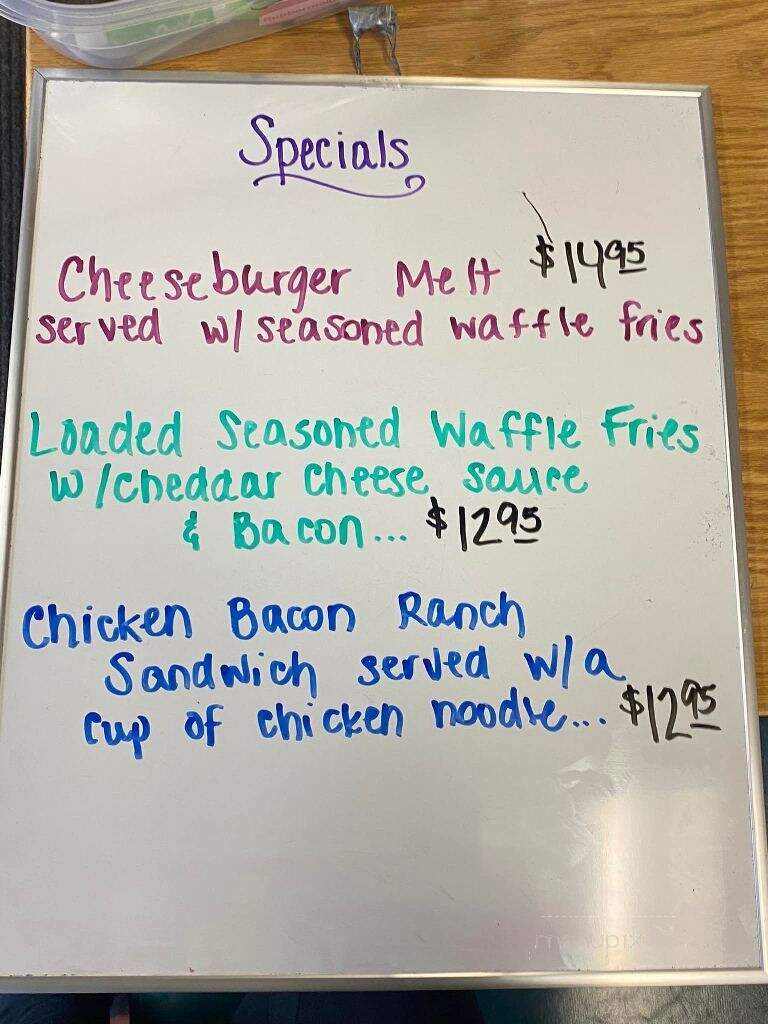 Specials
Cheeseburger Melt $14.95
served w/ seasoned waffle fries
Loaded Seasoned Waffle Fries
w/cheddar cheese sauce
& Bacon... $12.95
Chicken Bacon Ranch
Sandwich served w/ a
cup of chicken noodle... $12.95